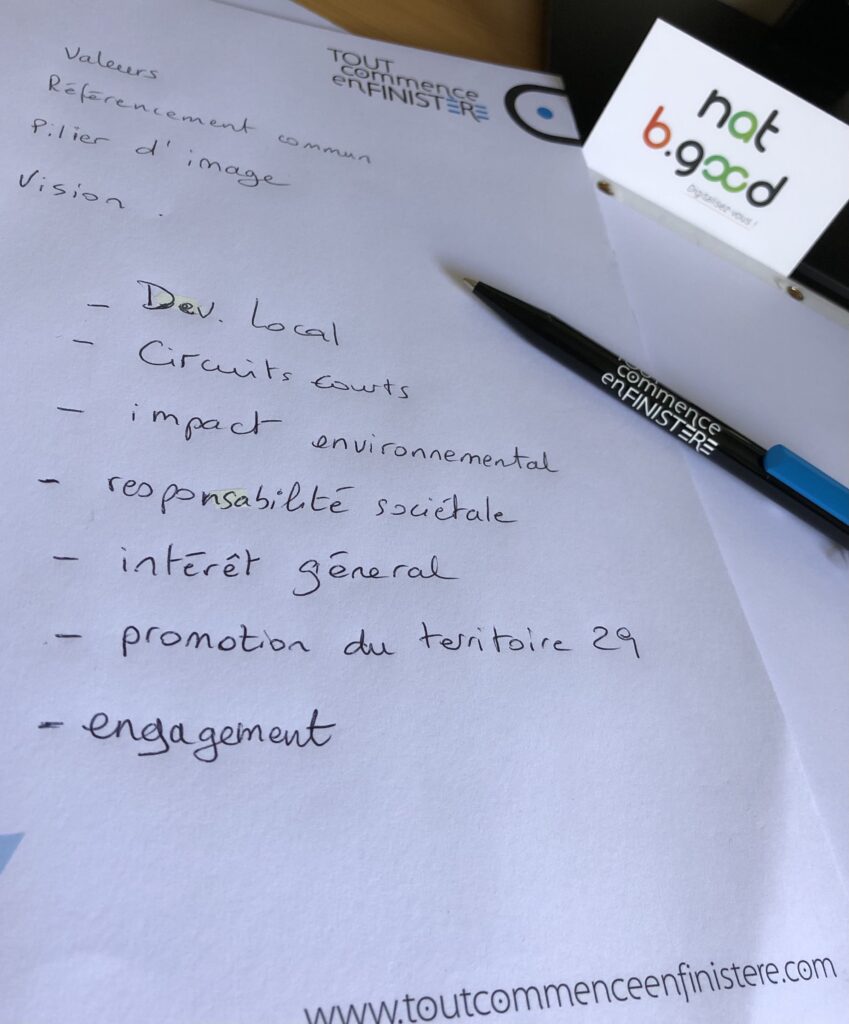 Valeurs
Référencement commun
Pilier d'image
Vision.
TOUT
commence
enFINISTERE
nat
b.good
Digitalisez-vous !
- Dev. Local
- Circuits courts
- impact environnemental
- responsabilité sociétale
- intérêt géneral
- promotion du territoire 29
- engagement
TOUT
commence
enFINISTERE
www.toutcommenceenfinistere.com